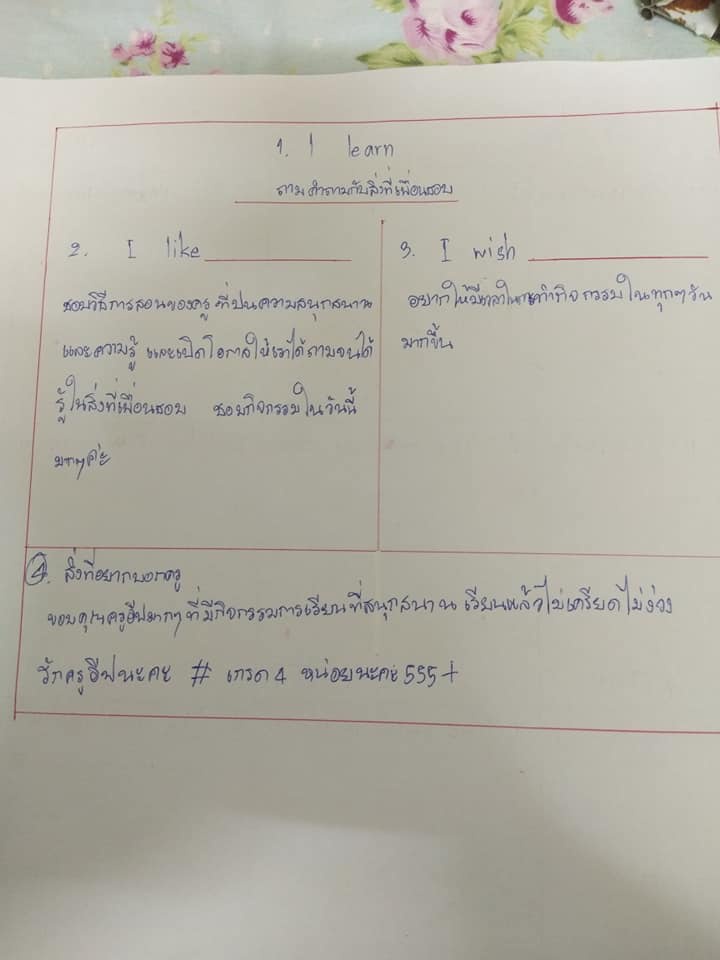 1. I learn
ถามคำถามกับสิ่งที่เพื่อนชอบ
2. I like
ชอบวิธีการสอนของครู ที่ปนความสนุกสนาน
และความรู้ และเปิดโอกาสให้เราได้ถามจนได้
รู้ในสิ่งที่เพื่อนชอบ ชอบกิจกรรมในวันนี้
มากๆค่ะ
3. I wish
อยากให้มีเวลาในการทำกิจกรรมในทุกๆวัน
มากขึ้น
4. สิ่งที่อยากบอกครู
ขอบคุณครูอีฟมากๆที่มีกิจกรรมการเรียนที่สนุกสนาน เรียนแล้วไม่เครียดไม่ง่วง
รักครูอีฟนะคะ # เกรด 4 หน่อยนะคะ 555+